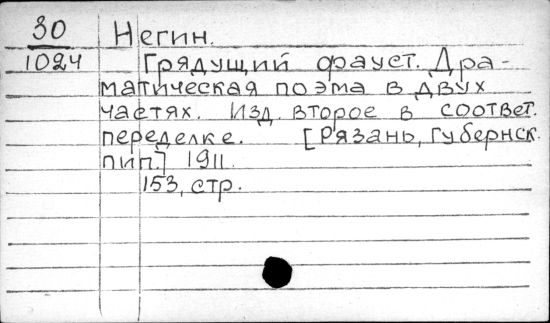 30 Негин.
1024 Грядущий фауст. Дра-
матическая поэма в двух
частях. Изд. второе в соответ.
переделке. [Рязань, Губернск.
тип.] 1911.
153, стр.